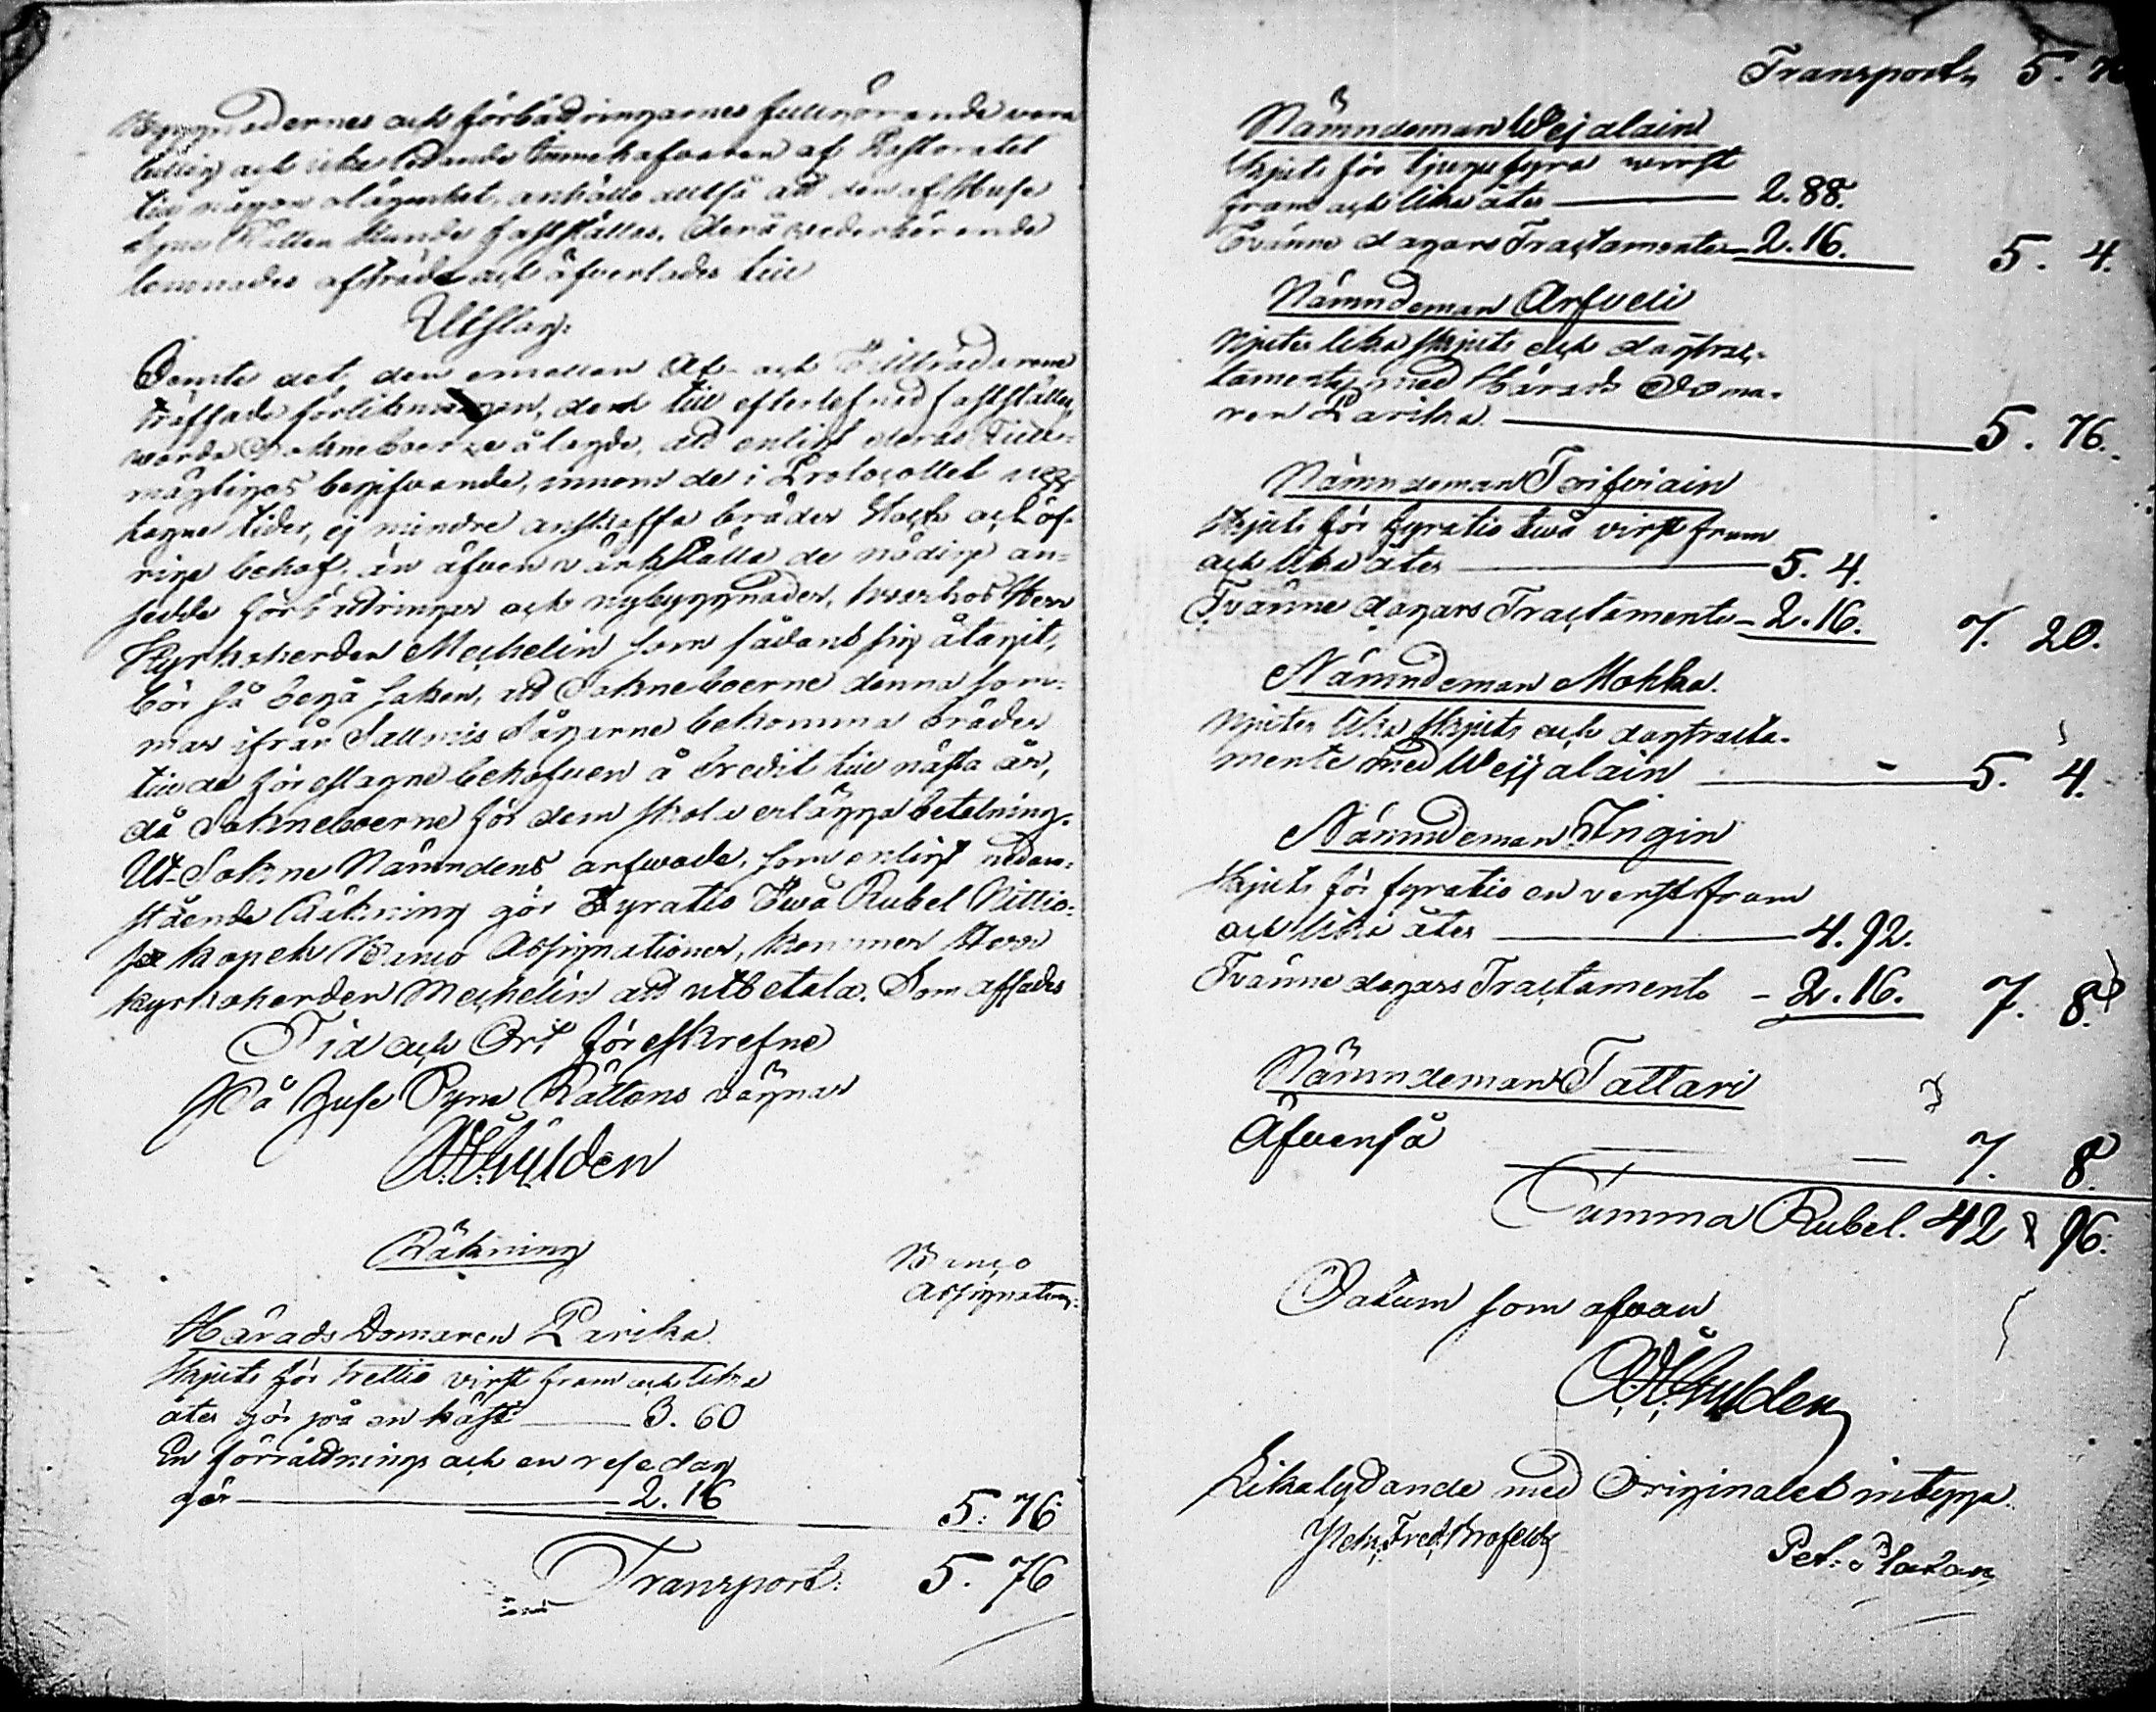 Byggnadernes och förbädringarnes fullgörande vara
billig och icke ledande innehafvaren af Pastoratet
till någon olägenhet, anhölls alltså att den af Huse
Syns Rätten kunde fastställas. Derå vederbörande
lemnades afträde och öfverlades till
Utslag:
Jemte det, den emellan Af- och Tillträdarene
träffade förlikningen, den till efterlefnad fastställes,
warda Sokneboerne ålagde, att enligt deras Full-
mägtiges begifvande, innom de i Protocollet upp-
tagne tider, ej mindre anskaffa bräder Stock och öf-
rige behof, än äfven värkställa de nödige an-
sedde förbädringar och nybyggnader, hvarhos Herr
Kyrkoherden Mechelin som sådant sig åtagit,
bör så begå saken, att Sokneboerne denna som-
mar ifrån Sallmis Sågarne bekomma bräder
till de föreslagne behofven å Credit till nästa år,
då Sokneboerne för dem skola erlägga betalning.
Ut-Sokne Nämndens arfwode, som enligt nedan-
stående Räkning gör Fyratio Twå Rubel Nittio-
sex kopek Banco Assignationer, kommer Herr
kyrkoherden Mechelin att utbetala. Som afsades
Tid och Ort föreskrefne
På Huse Syns Rättens vägnar
Räkning
Banco
Assignation:
Härads Domaren Parikka
Skjuts för trettio virst fram och lika
åter gör på en häst — 3. 60
En förrättnings och en resedag
gör — 2. 16 5: 76
Transport: 5. 76
Transport, 5. 76
Nämndeman Wejalain
Skjuts för tjugufyra werst
fram och lika åter — 2. 88.
Tvänne dagars Tractamente — 2. 16. 5. 4.
Nämndeman Arfveli
Njuter lika skjuts och dagtrac-
tamente med Härads Doma-
ren Parikka — 5. 76.
Nämndeman Toifviain
Skjuts för fyratio twå virst fram
och lika åter — 5. 4.
Tvänne dagars Tractamente — 2. 16. 7. 20.
Nämndeman Mokka.
Njuter lika skjuts och dagtracta-
mente med Wejjalain — 5. 4.
Nämndeman Ingin
Skjuts för fyratio en verst fram
och lika åter — 4. 92.
Tvänne dagars Tractamente — 2. 16. 7. 8.
Nämndeman Tattari
Äfvenså — 7. 8.
Summa Rubel. 42 & 96.
Datum som ofvan
Likalydande med Originalet intyga.
Fred: Brofeldt
Pet: